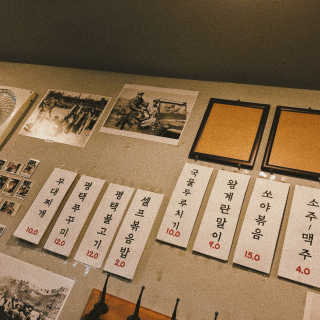 부대찌개 10.0
평택쭈꾸미 12.0
평택불고기 12.0
셀프볶음밥 2.0
국물두루치기 10.0
왕계란말이 9.0
쏘야볶음 13.0
소주-맥주 4.0